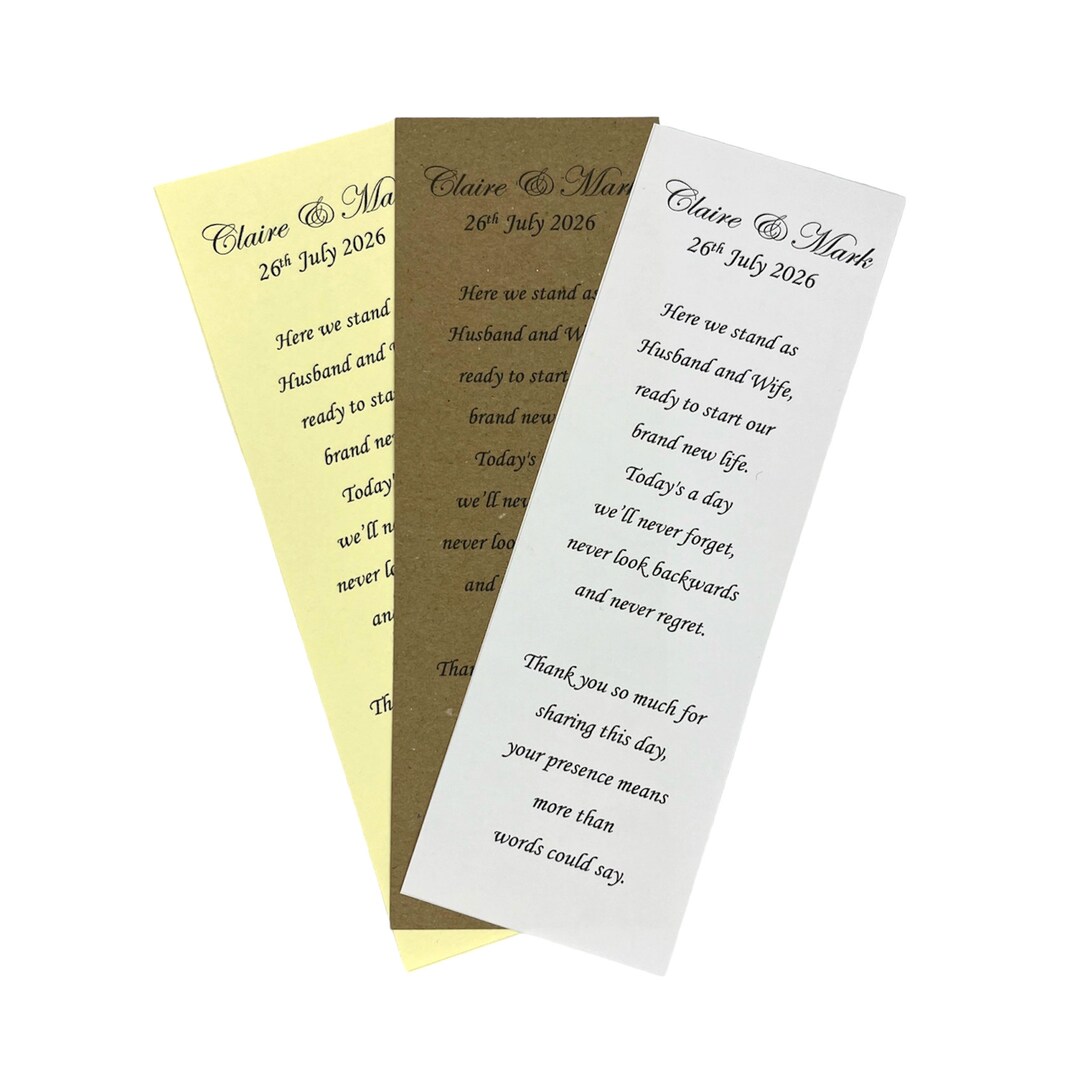 Claire & Ma
26th July 2026
Here we stand
Husband and
ready to sta
brand ne
Today'
we'll n
never lo
an
Th
Claire & Mark
26th July 2026
Here we stand as
Husband and W
ready to start
brand new
Today's
we'll nev
never loo
and
Than
Claire & Mark
26th July 2026
Here we stand as
Husband and Wife,
ready to start our
brand new life.
Today's a day
we'll never forget,
never look backwards
and never regret.
Thank you so much for
sharing this day,
your presence means
more than
words could say.